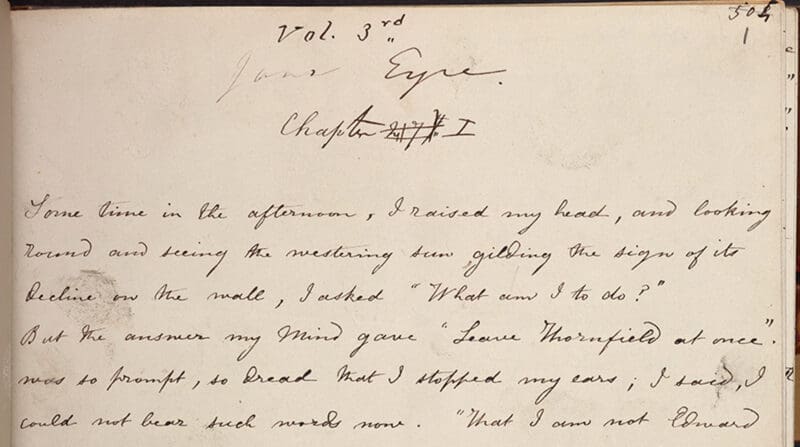 504
1
Vol. 3rd
Jane Eyre.
Chapter I
Some time in the afternoon, I raised my head, and looking
round and seeing the westering sun gilding the sign of its
decline on the wall, I asked "What am I to do?"
But the answer my Mind gave "Leave Thornfield at once".
was so prompt, so dread that I stopped my ears; I said, I
could not bear such words now. "That I am not Edward